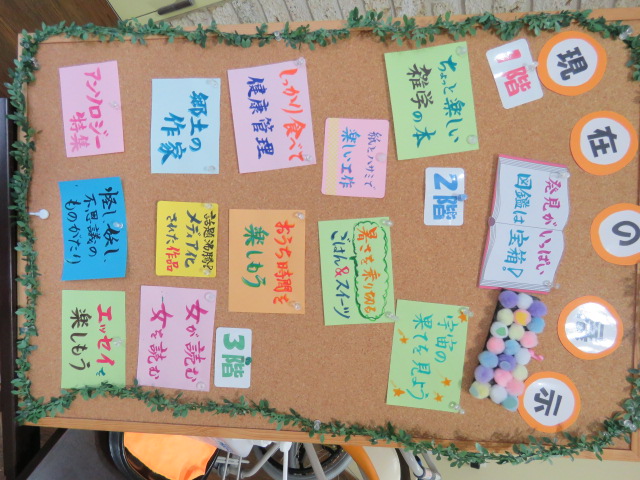 現在の展示
発見がいっぱい
図鑑は宝箱?
1階
ちょっと楽しい
雑学の本
紙とハサミで
楽しい工作
しっかり食べて
健康管理
郷土の
作家
アンソロジー
特集
2階
宇宙の
果てを見よう
暑さを乗り切る
ごはん&スイーツ
おうち時間を
楽しもう
話題沸騰?
メディア化
された作品
怪し、妖し、
不思議の
ものがたり
3階
女が読む
女を読む
エッセイで
楽しもう